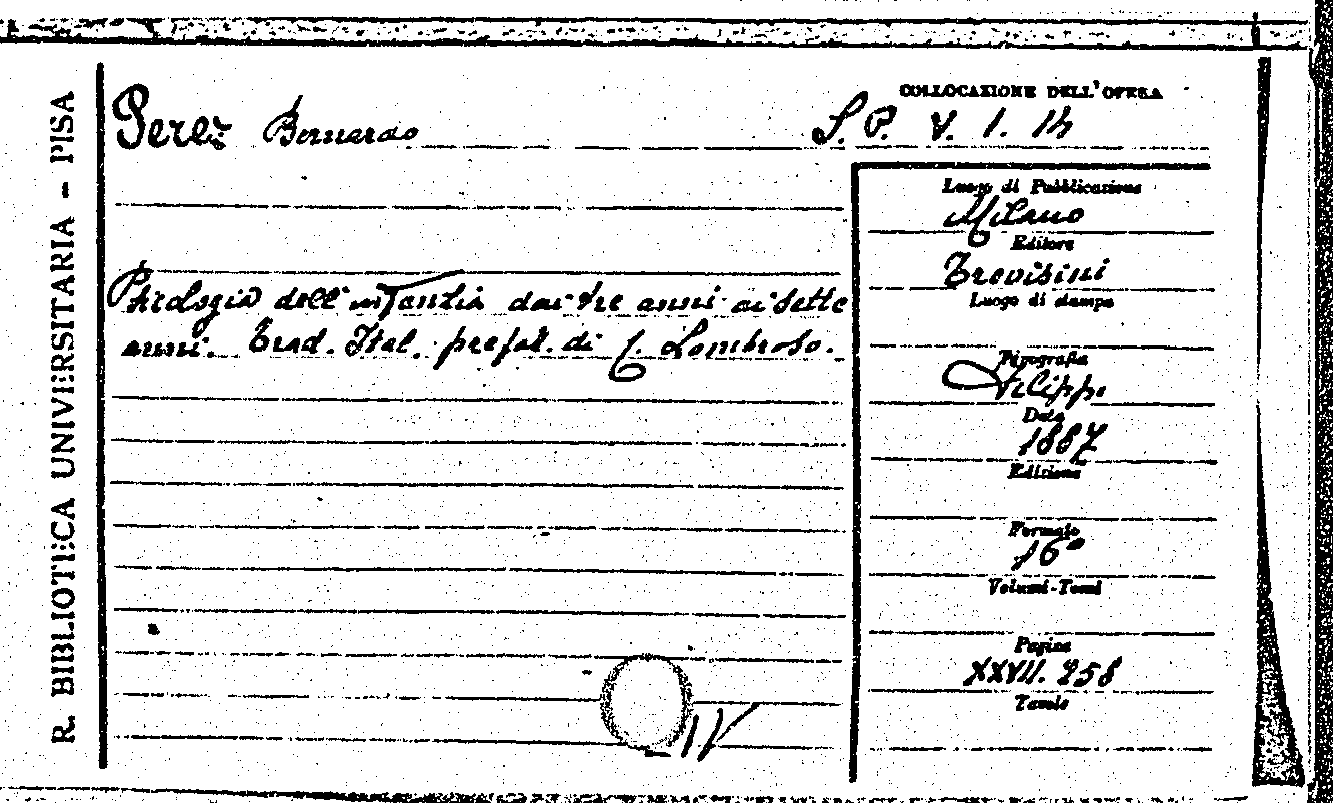 R. BIBLIOTECA UNIVERSITARIA - PISA
COLLOCAZIONE DELL'OPERA
Perez Bernardo
S. P. V. 1. 14
Luogo di Pubblicazione
Milano
Editore
Trevisini
Luogo di stampa
Psicologia dell'infanzia dai tre anni ai sette
anni. Trad. Ital. prefat. di C. Lombroso.
Tipografia
Filippi
Data
1887
Edizione
Formato
16°
Volumi-Tomi
Pagine
XXVII. 258
Tavole